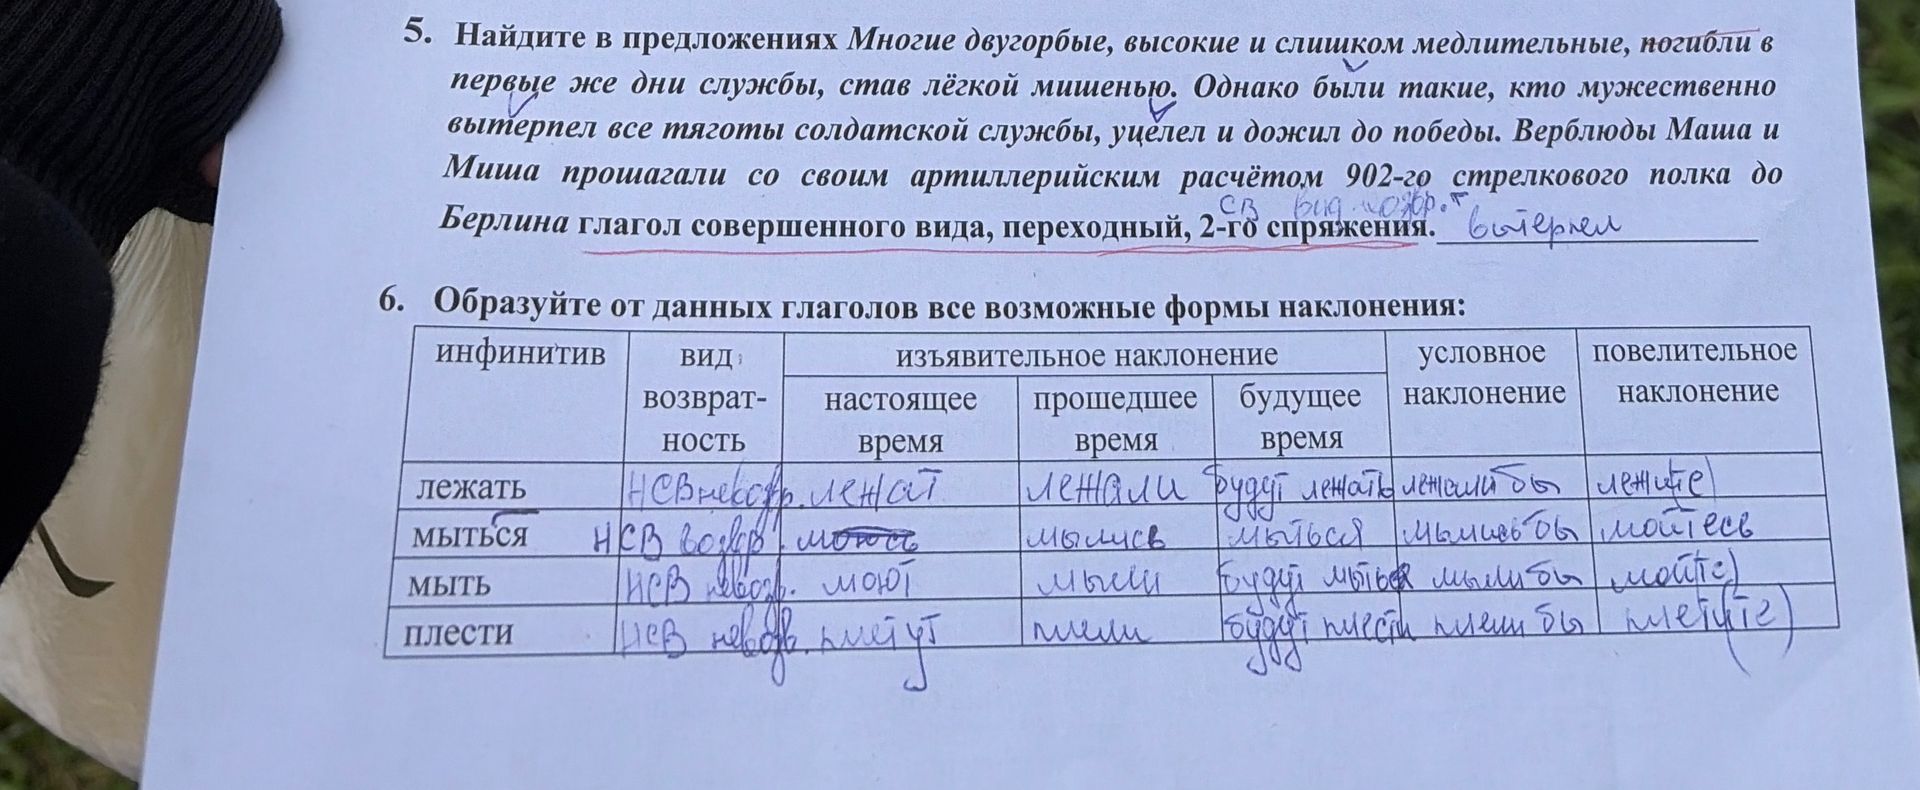 5. Найдите в предложениях Многие двугорбые, высокие и слишком медлительные, погибли в
первые же дни службы, став лёгкой мишенью. Однако были такие, кто мужественно
вытерпел все тяготы солдатской службы, уцелел и дожил до победы. Верблюды Маша и
Миша прошагали со своим артиллерийским расчётом 902-го стрелкового полка до
СВ вид
Берлина глагол совершенного вида, переходный, 2-го спряжения. вытерпел
6. Образуйте от данных глаголов все возможные формы наклонения:
инфинитив вид возврат-ность изъявительное наклонение условное наклонение повелительное наклонение
настоящее время прошедшее время будущее время
лежать НСВ невозвр. лежат лежали будут лежать лежали бы лежи(те)
мыться НСВ возвр. моюсь мылись мыться мылись бы мойтесь
мыть НСВ невозв. моют мыли будут мыться мыли бы мой(те)
плести НСВ невозв. плетут плели будут плести плели бы плети(те)